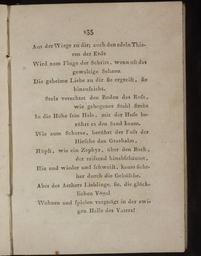 135
Aus der Wiege zu dir; auch den edeln Thie-
ren der Erde
Wird zum Fluge der Schritt, wenn oft das
gewaltige Sehnen
Die geheime Liebe zu dir sie ergreift, sie
hinaufzieht.
Stolz verachtet den Boden das Roß,
wie gebogener Stahl strebt
In die Höhe sein Hals, mit der Hufe be-
rührt es den Sand kaum.
Wie zum Scherze, berührt der Fuß der
Hirsche den Grashalm,
Hüpft, wie ein Zephyr, über den Bach,
der reißend hinabschäumt,
Hin und wieder und schweift, kaum sicht-
bar durch die Gebüsche.
Aber des Aethers Lieblinge, sie, die glück-
lichen Vögel
Wohnen und spielen vergnügt in der ewi-
gen Halle des Vaters!